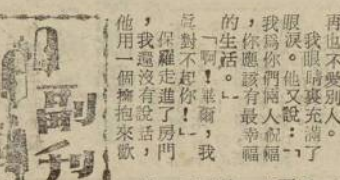 再也不愛別人。
我眼睛裏充滿了
眼淚。他又說：「
我為你們倆人祝福
，你應該有最幸福
的生活。」
「啊！華爾，我
對不起你！」
保羅走進了房門
，我還沒有說話，
他用一個擁抱來歡
副刊